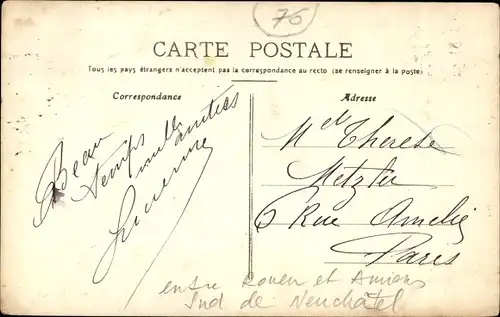 76
CARTE POSTALE
Tous les pays étrangers n'acceptent pas la correspondance au recto (se renseigner à la poste)
Correspondance
Adresse
Beau
temps
mille amitiés
Melle Therese
Metzler
6 Rue Amelie
Paris
entre Rouen et Amiens
Sud de Neuchâtel